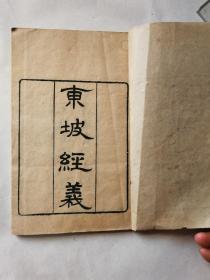 東坡經義